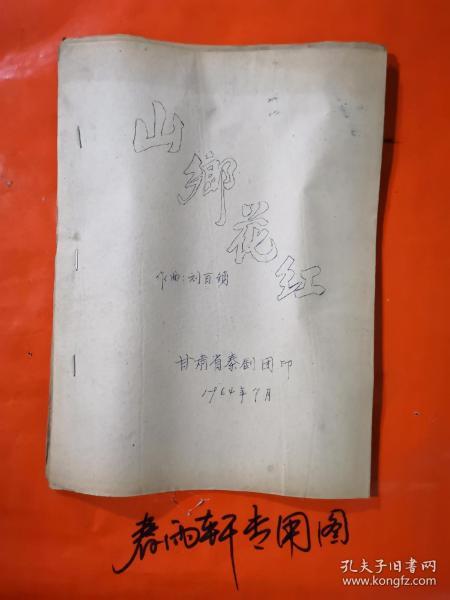 山鄉花红
作曲:刘百锁
甘肃省秦剧团印
1964年7月
春雨轩专用图
孔夫子旧书网
www.kongfz.com